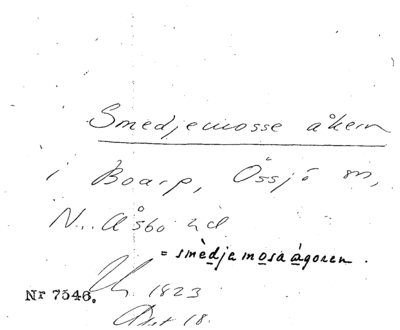 Smedjemosse åkern
i Boarp, Össjö sn,
N. Åsbo hd
= smèdjamosaågoren.
Nr 7546. 1823
18.